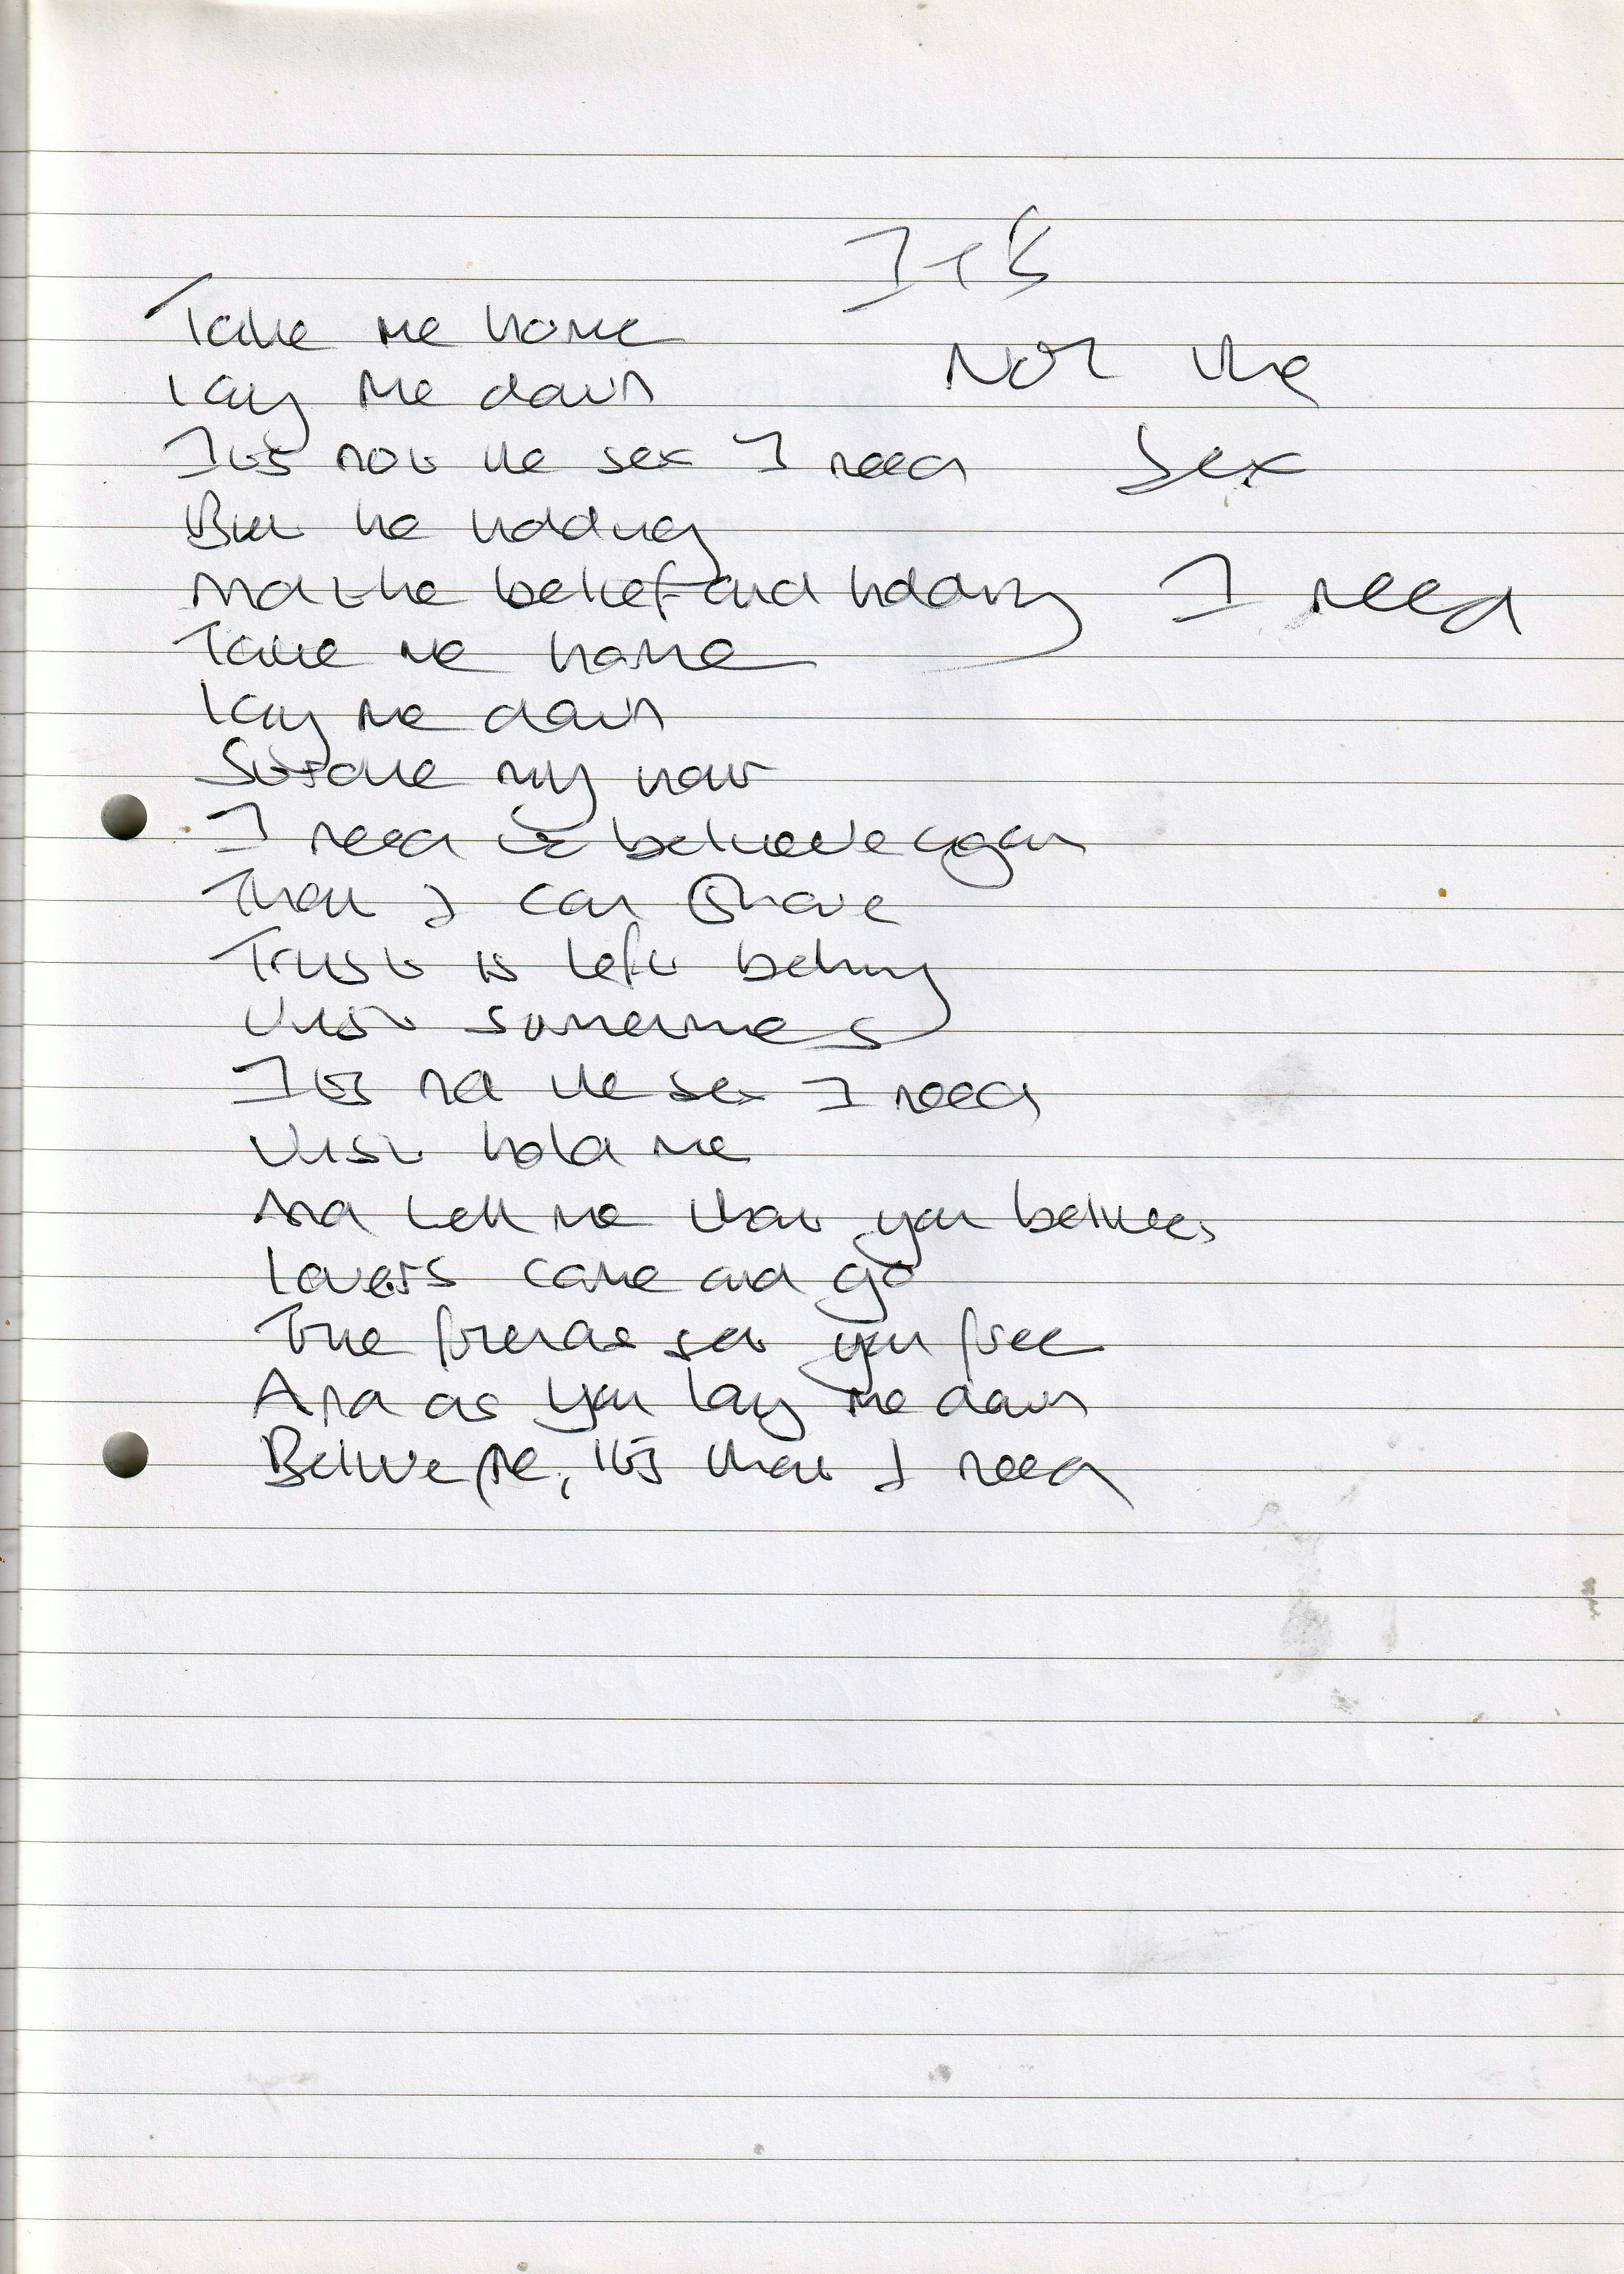 It's
Not the
Sex
I need
Take me home
Lay me down
It's not the sex I need
But the holding
And the belief and holding
Take me home
Lay me down
Stroke my hair
I need to believe again
That I can share
Trust is left behind
Just sometimes
It's not the sex I need
Just hold me
And tell me that you believe,
Lovers come and go
True friends set you free
And as you lay me down
Believe me, it's that I need